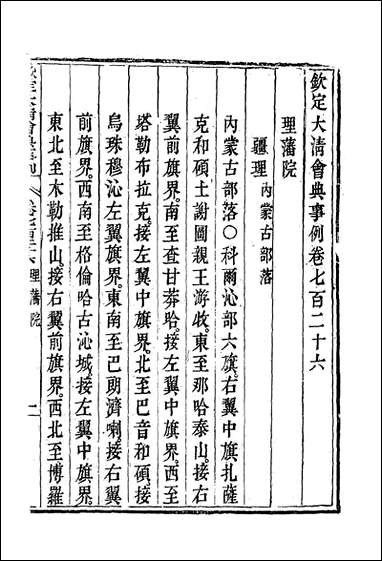 欽定大淸會典事例卷七百二十六
理藩院
疆理內蒙古部落
內蒙古部落○科爾沁部六旗。右翼中旗。扎薩
克和碩土謝圖親王游牧。東至那哈泰山。接右
翼前旗界。南至查甘莽哈。接左翼中旗界。西至
塔勒布拉克。接左翼中旗界。北至巴音和碩。接
烏珠穆沁左翼旗界。東南至巴朗濟喇。接右翼
前旗界。西南至格倫哈古沁城。接左翼中旗界。
東北至木勒推山。接右翼前旗界。西北至博羅
理藩院